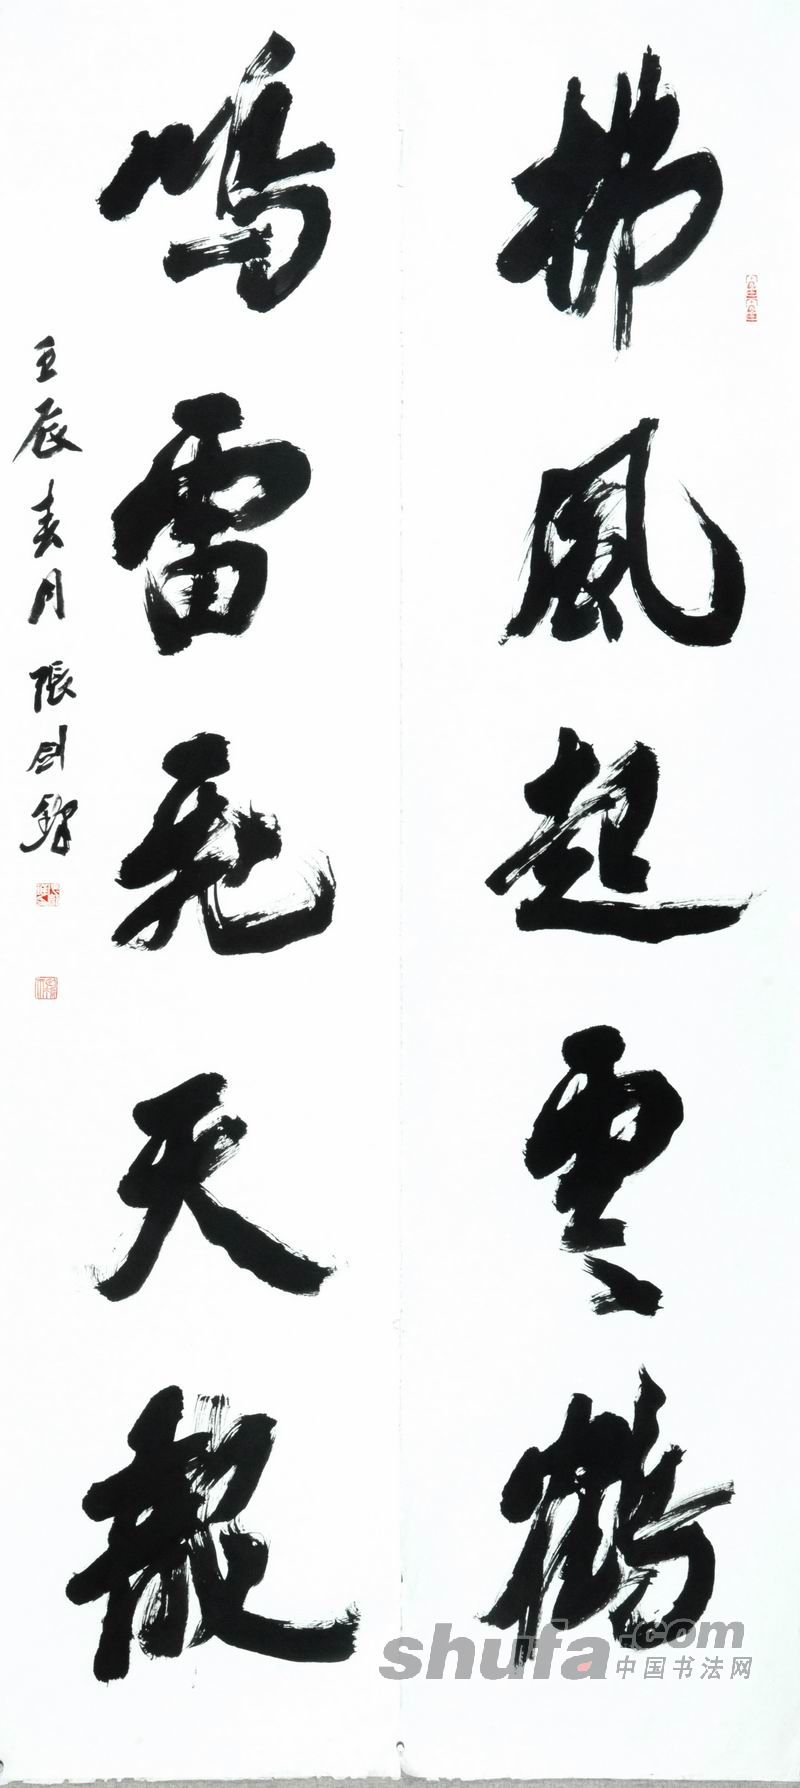 拂風起雲鶴
鳴雷飛天龍
壬辰春月張劍鋒
shufa.com
中国书法网